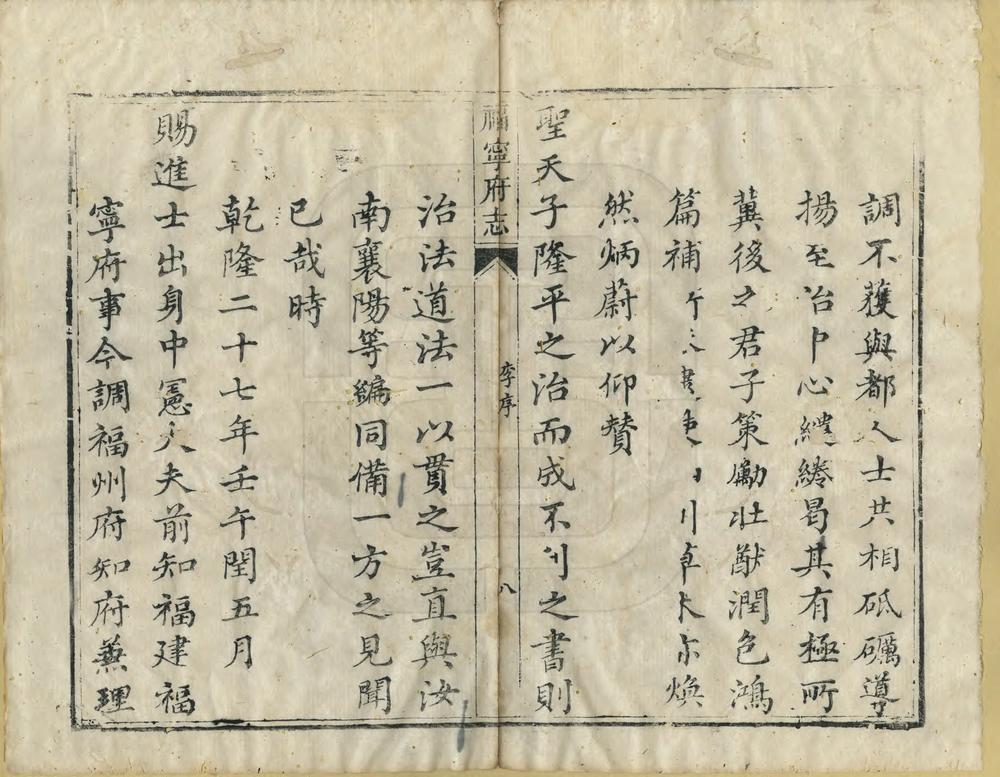 調不獲與都人士共相砥礪導
揚至治中心繾綣曷其有極所
冀後之君子策勵壯猷潤色鴻
篇補 卓 尔煥
然炳蔚以仰贊
聖天子隆平之治而成不刊之書則
福寧府志
李序
八
治法道法一以貫之豈直與汝
南襄陽等編同備一方之見聞
已哉時
乾隆二十七年壬午閏五月
賜進士出身中憲大夫前知福建福
寧府事今調福州府知府兼理